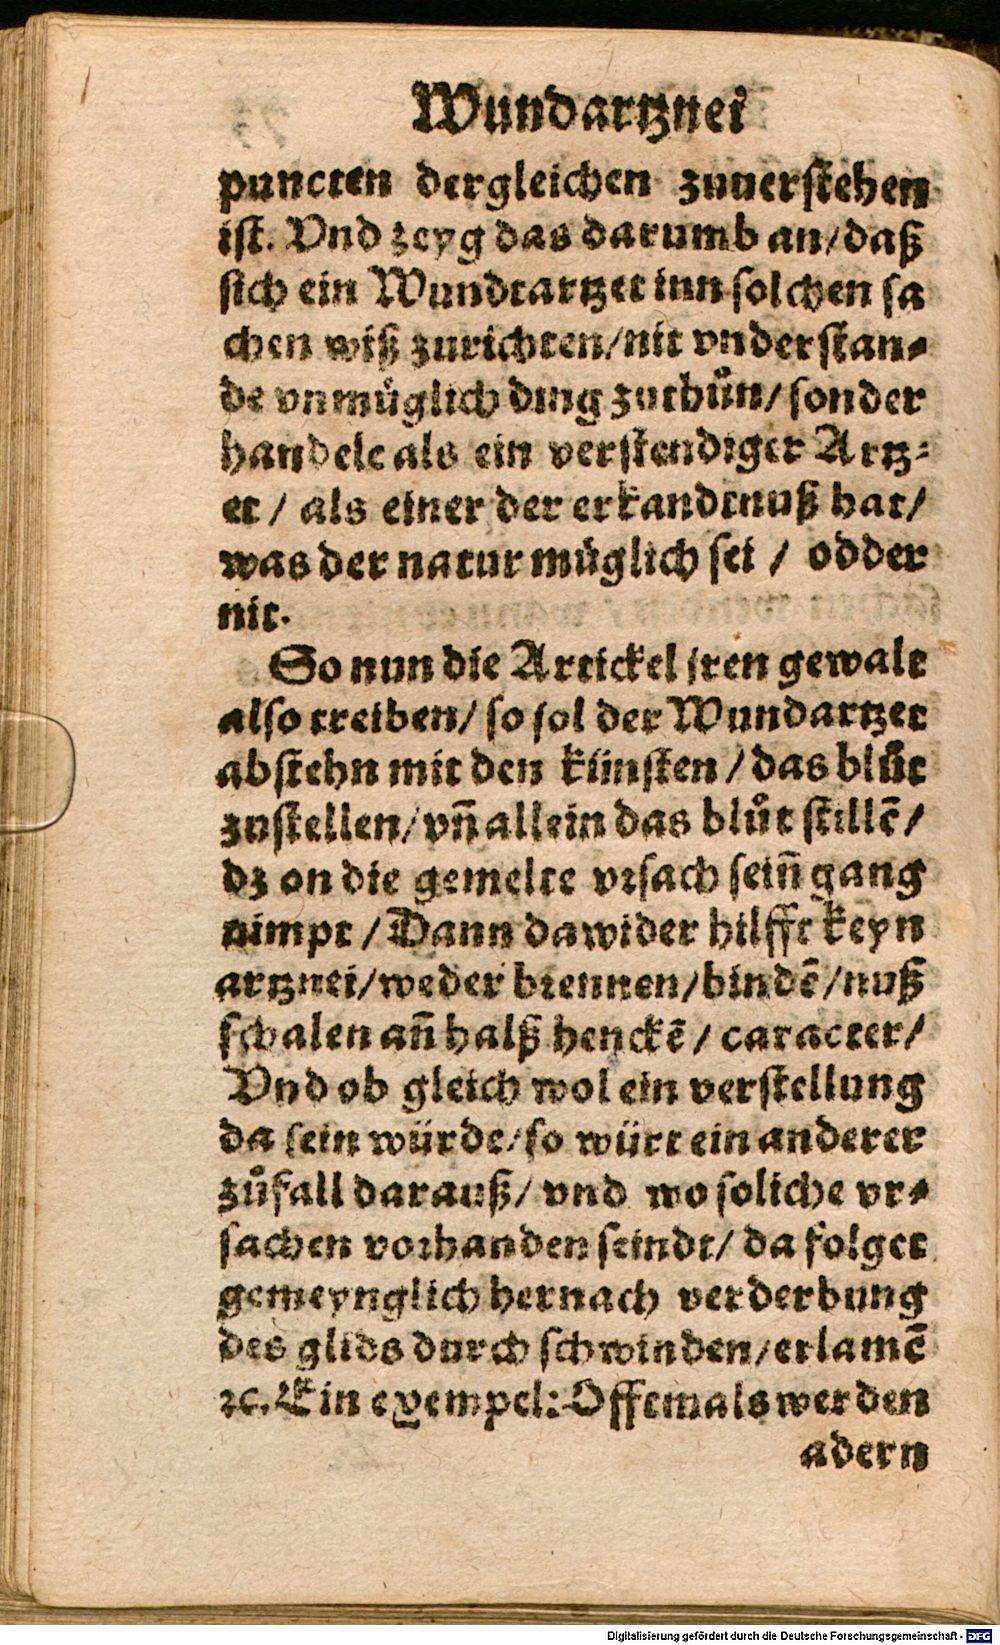 Wundartznei
puncten dergleichen zuuerstehen
ist. Vnd zeyg das darumb an/daß
sich ein Wundtartzet inn solchen sa
chen wiß zurichten/nit vnderstan⸗
de vnmüglich ding zuthůn/sonder
handele als ein verstendiger Artz⸗
et / als einer der erkandtnuß hat/
was der natur müglich sei / odder
nit.
So nun die Artickel jren gewalt
also treiben/ so sol der Wundartzet
abstehn mit den künsten / das blůt
zustellen/ vñ allein das blůt stillē/
dz on die gemelte vrsach seiñ gang
nimpt / Dann dawider hilfft keyn
artznei/weder brennen/bindē/nuß
schalen añ halß henckē / caracter/
Vnd ob gleich wol ein verstellung
da sein würde/so würt ein anderer
zůfall darauß/ vnd wo soliche vr⸗
sachen vorhanden seindt/ da folget
gemeynglich hernach verderbung
des glids durch schwinden/erlamē
ꝛc. Ein exempel: Offtmals werden
adern
Digitalisierung gefördert durch die Deutsche Forschungsgemeinschaft - DFG